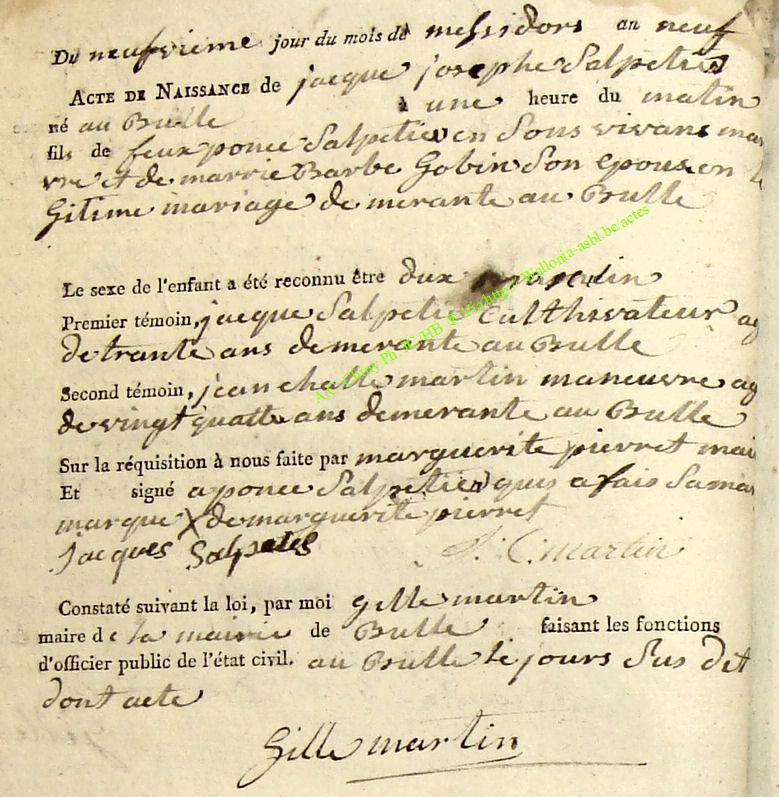 Du neufvieme jour du mois de messidors an neuf
ACTE DE NAISSANCE de jacque josephe Salpetier
né au Brulle à une heure du matin
fils de feux ponce Salpetier en Sons vivans man
vre et de marrie Barbe Gobin Son epouse en le
Gitime mariage demerante au Brulle
Le sexe de l'enfant a été reconnu être dux masculin
Premier témoin, jacque Salpetie Culthivateur ag
de trante ans demerante au Brulle
Second témoin, jean challe martin maneuvre ag
de vingt quatte ans demerante au Brulle
Sur la réquisition à nous faite par marguerite pierret
Et signé a ponce Salpetier quis a fais Sa
marque X de marguerite pierret
jacques Salpetier J. C. martin
Constaté suivant la loi, par moi gille martin
maire de la mairie de Brulle faisant les fonctions
d'officier public de l'état civil. au Brulle le jours Sus dit
dont acte
Gille martin